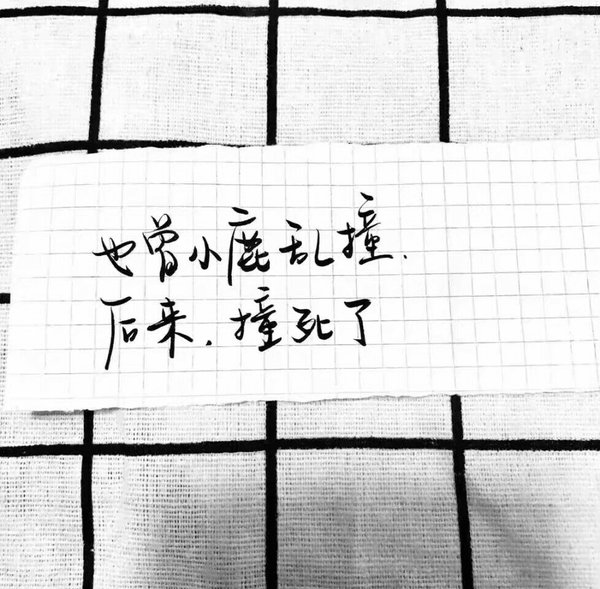 也曾小鹿乱撞.
后来.撞死了